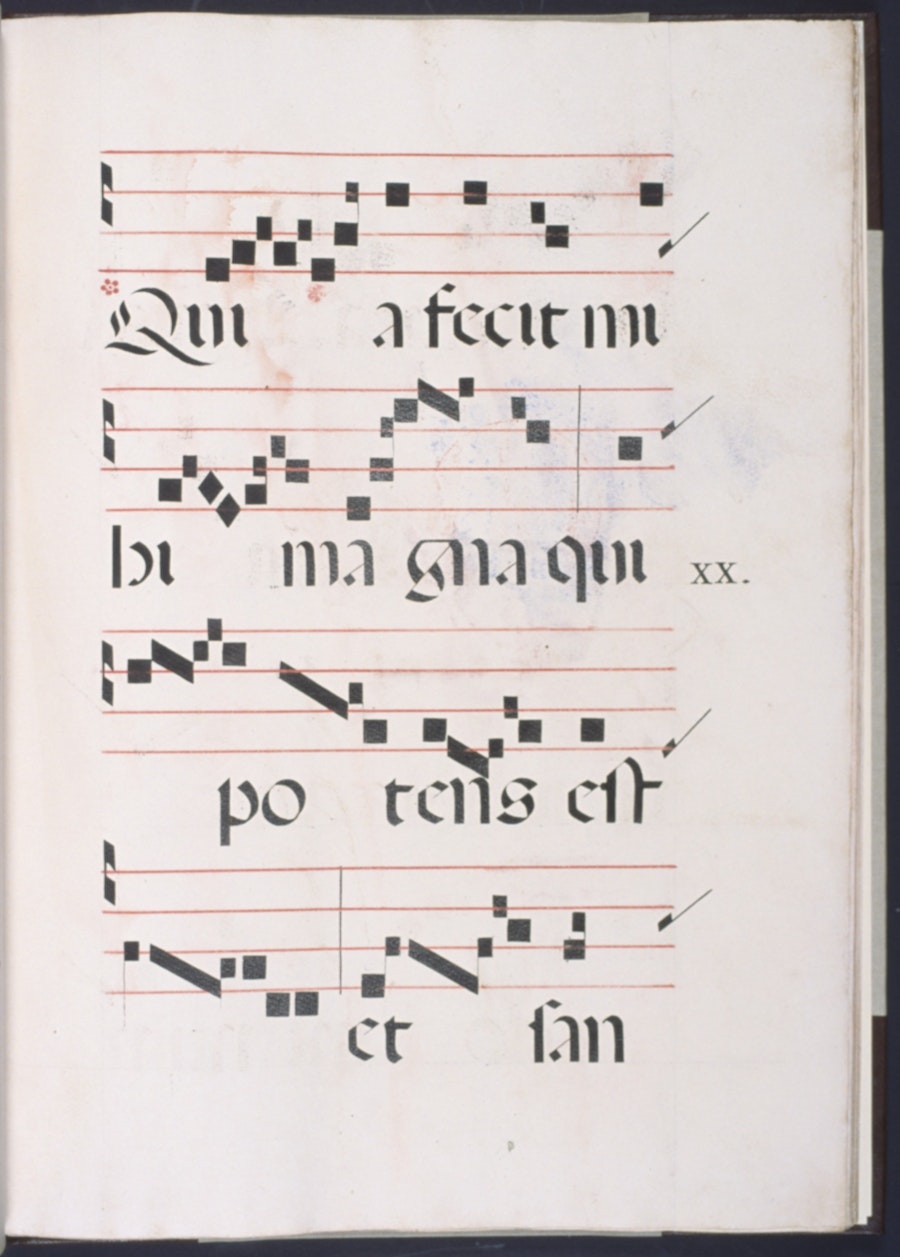 Qui a fecit mi
hi ma gna qui xx.
po tens est
et san